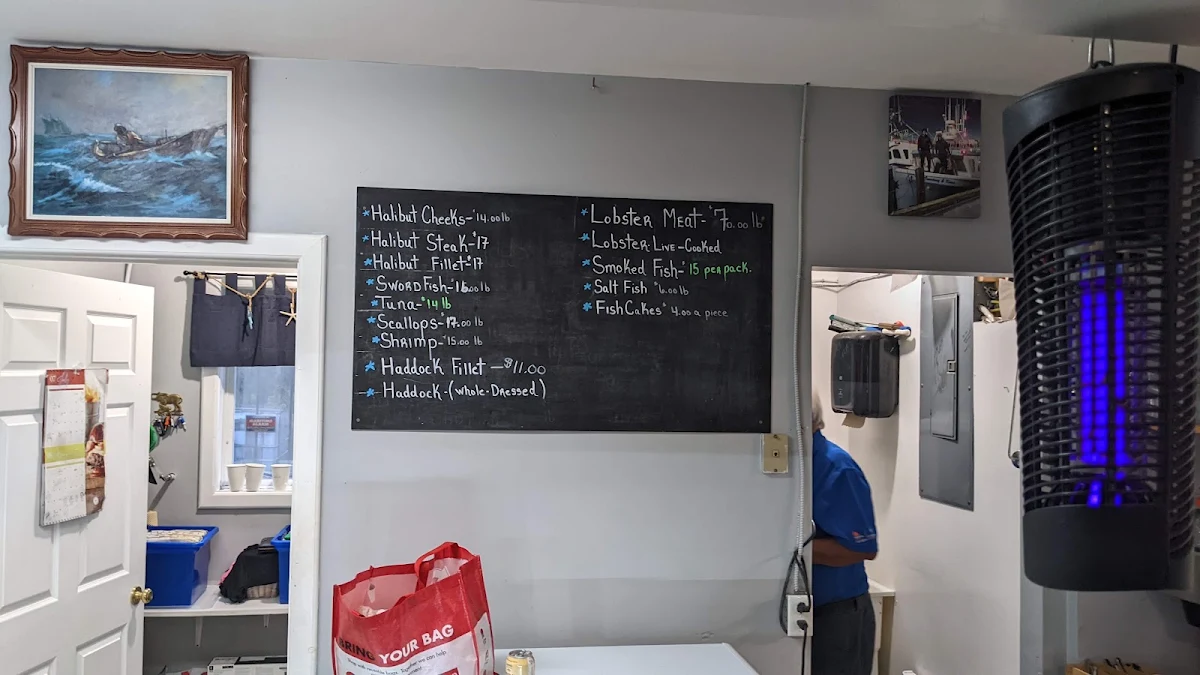 *Halibut Cheeks-$14.00lb
*Halibut Steak-$17
*Halibut Fillet-$17
*Swordfish-16.00lb
*Tuna-$14 lb
*Scallops-$17.00 lb
*Shrimp-$15.00 lb
*Haddock Fillet -$11.00
*Haddock-(Whole-Dressed)
*Lobster Meat-$70.00lb
*Lobster-Live-Cooked
*Smoked Fish-$15 per pack.
*Salt Fish $6.00lb
*FishCakes $4.00 a piece
BRING YOUR BAG
Together we can help